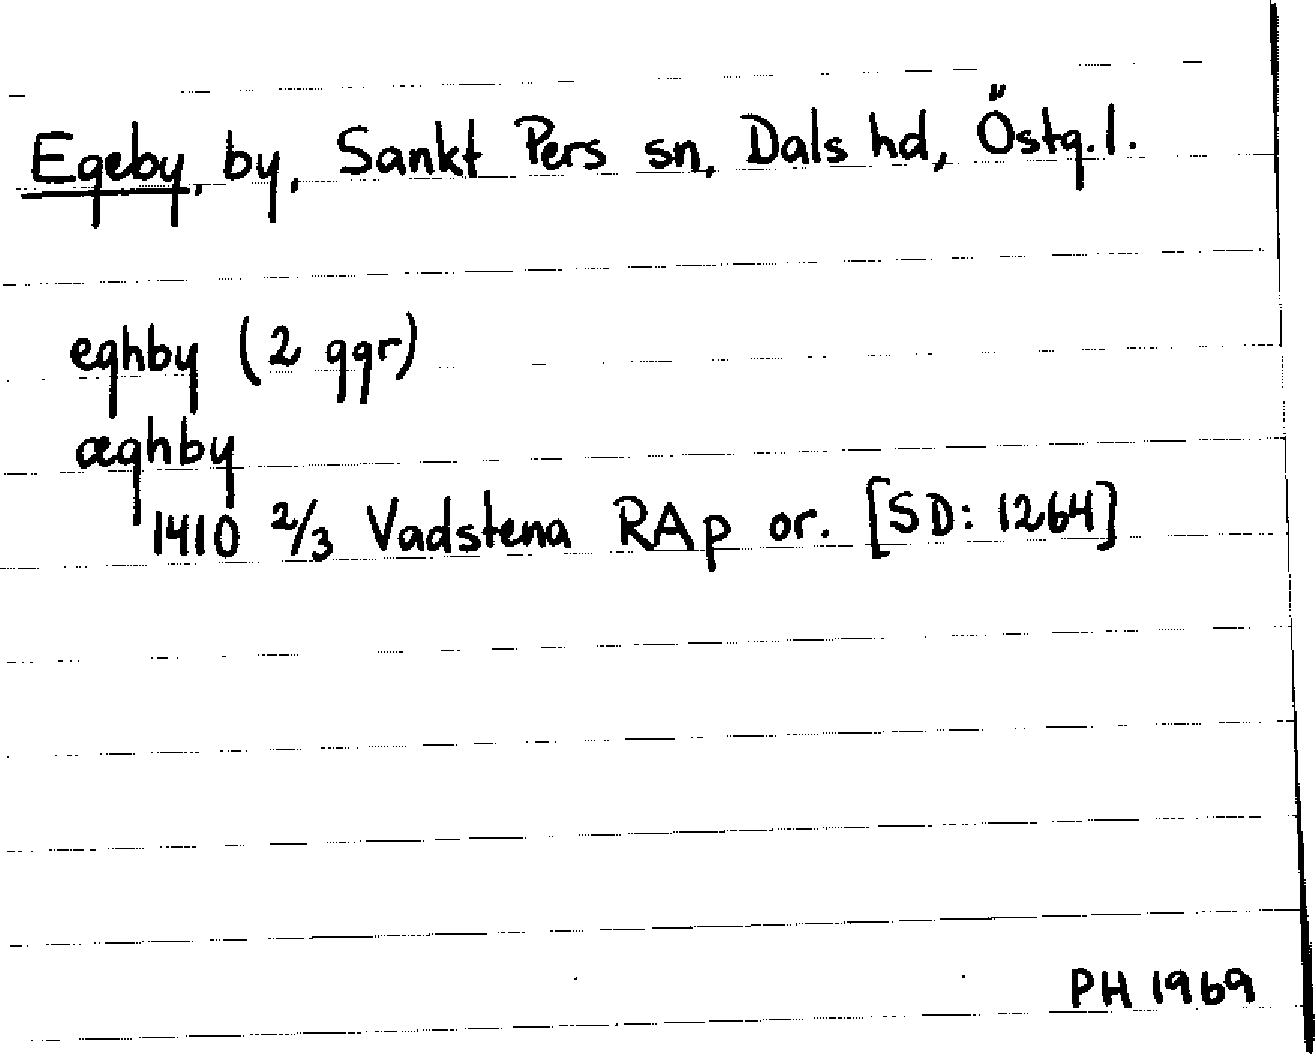 Egeby, by, Sankt Pers sn, Dals hd, Östg.l.
eghby (2 ggr)
æghby
1410 2/3 Vadstena RAp or. [SD: 1264]
PH 1969